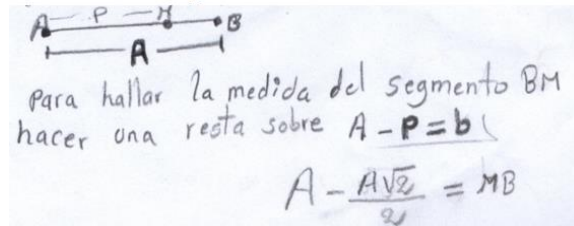 A — P — M B
A
para hallar la medida del segmento BM
hacer una resta sobre A - P = b
A - A√2/2 = MB